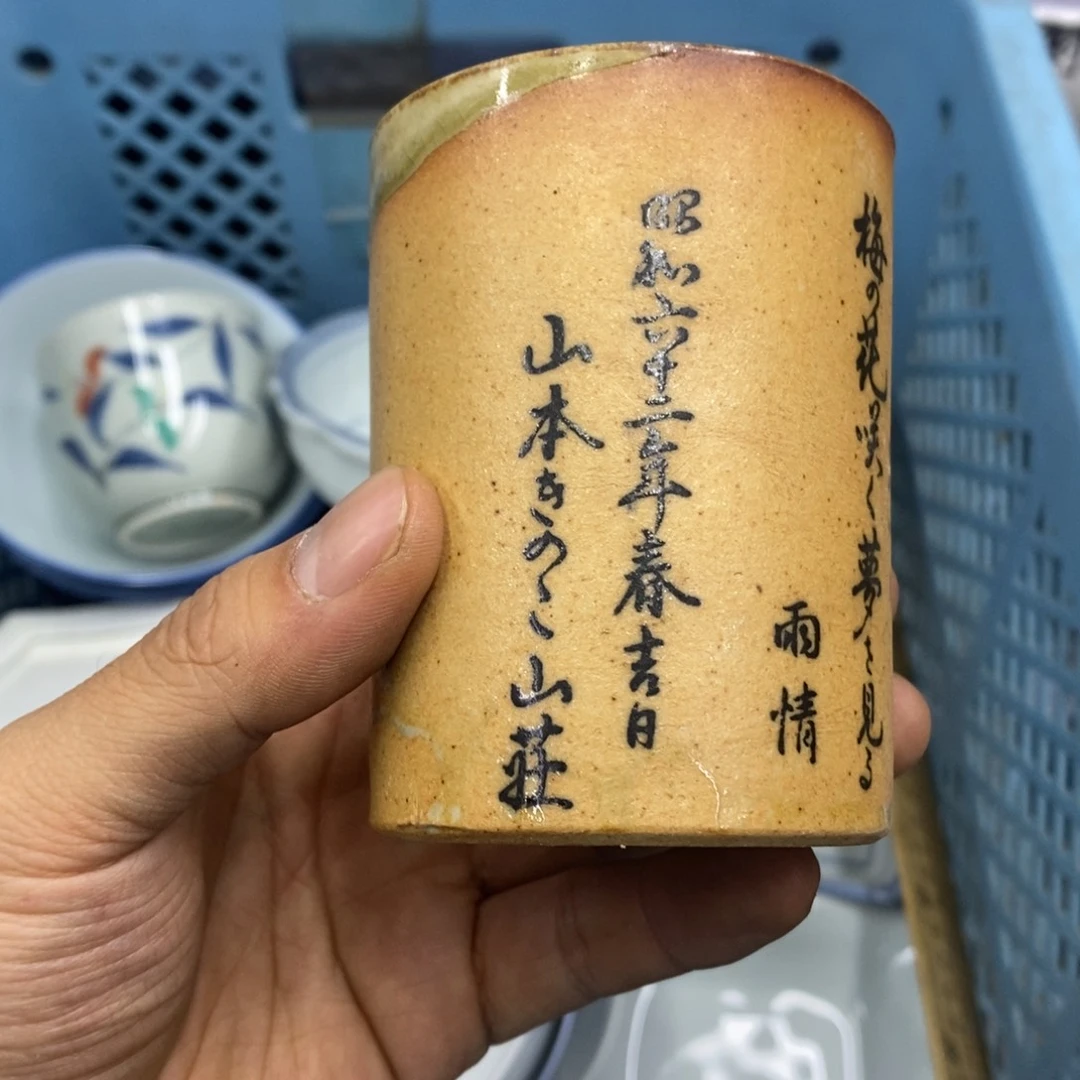 梅の花咲く夢を見る
雨情
昭和六十三年春吉日
山本きのこ山荘